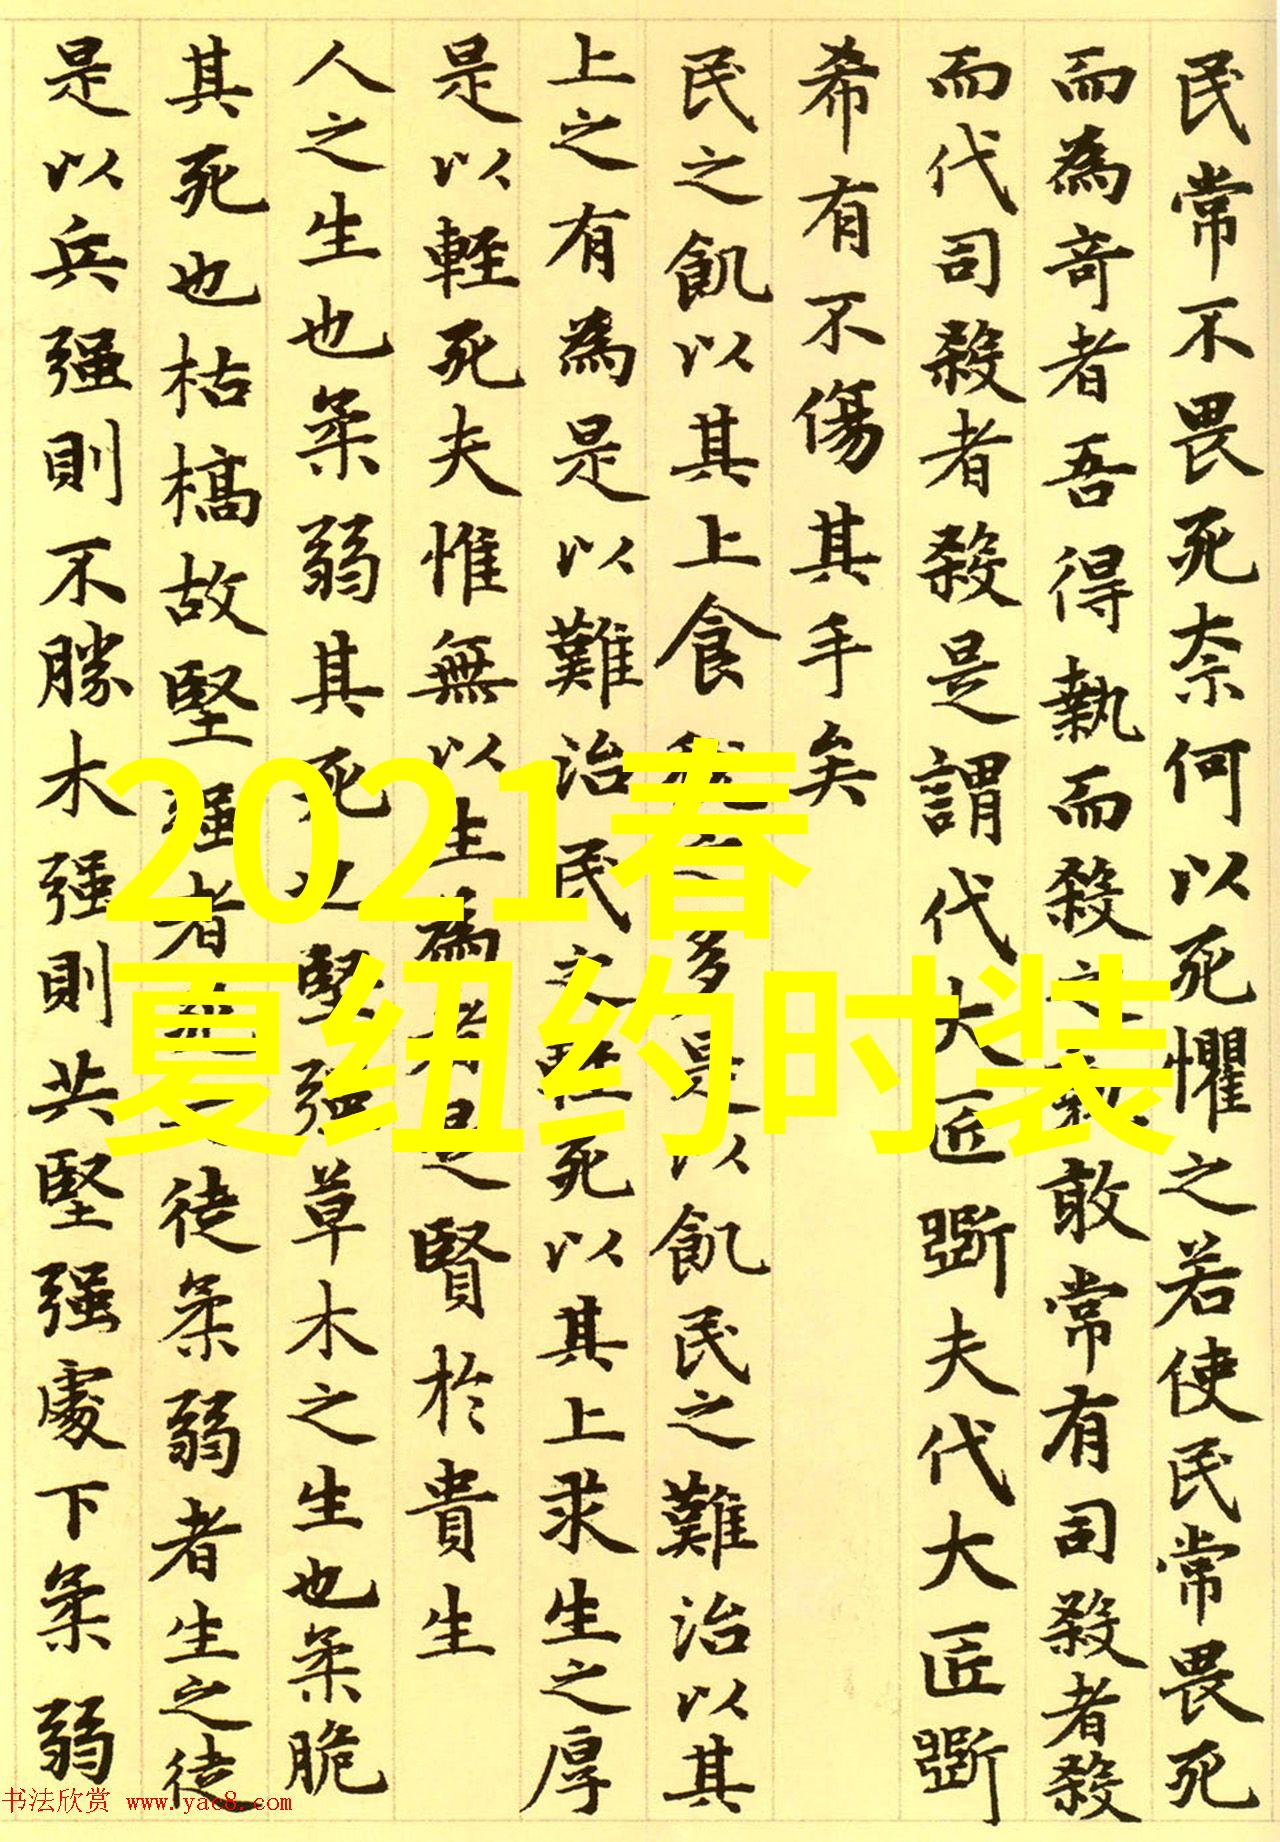 民常不畏死奈何以死懼之若使民常畏死
而為奇者吾得執而殺之孰敢常有司殺者殺
而代司殺者殺是謂代大匠斲夫代大匠斲
希有不傷其手矣
民之飢以其上食稅之多是以飢民之難治以其
上之有為是以難治民之輕死以其上求生之厚
是以輕死夫惟無以生為者是賢於貴生
人之生也柔弱其死也堅强草木之生也柔脆
其死也枯槁故堅强者死之徒柔弱者生之徒
是以兵强則不勝木强則共堅强處下柔弱
2021春
夏纽约时装
书法欣赏 www.yac8.com